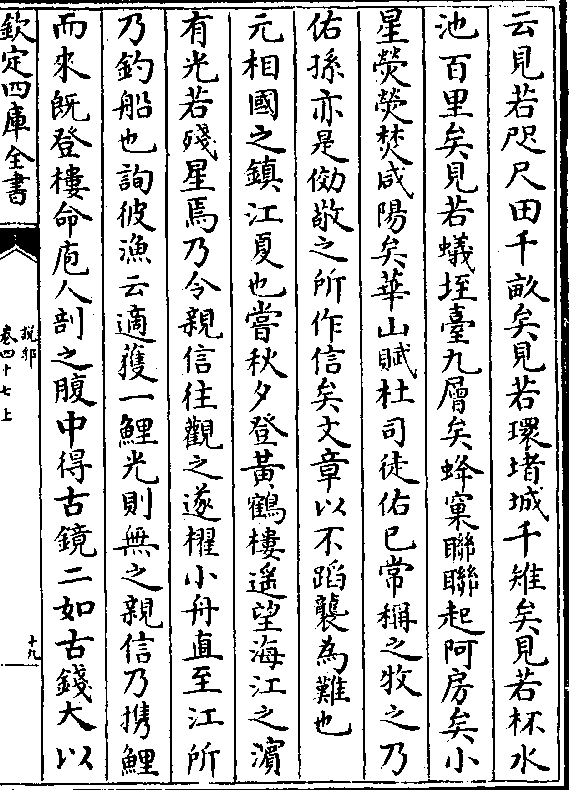 云見若咫尺田千畝矣見若環堵城千雉矣見若杯水
池百里矣見若蟻垤臺九層矣蜂窠聯聯起阿房矣小
星熒熒焚咸陽矣華山賦杜司徒佑已常稱之牧之乃
佑孫亦是倣敬之所作信矣文章以不蹈襲為難也
元相國之鎮江夏也嘗秋夕登黃鶴樓遥望海江之濵
有光若殘星焉乃令親信往觀之遂櫂小舟直至江所
乃釣船也詢彼漁云適獲一鯉光則無之親信乃携鯉
而來既登樓命庖人剖之腹中得古鏡二如古錢大以
欽定四庫全書
說郛
卷四十七上
十九